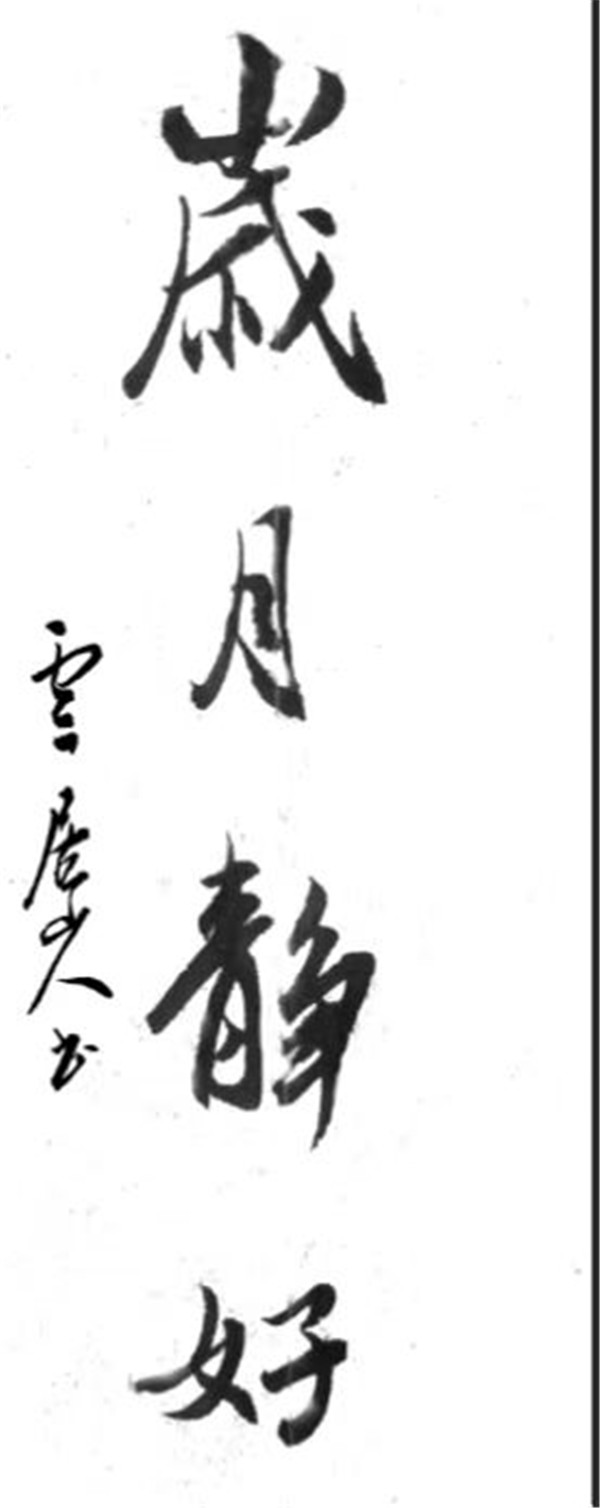 歲月静好
雲居山人书